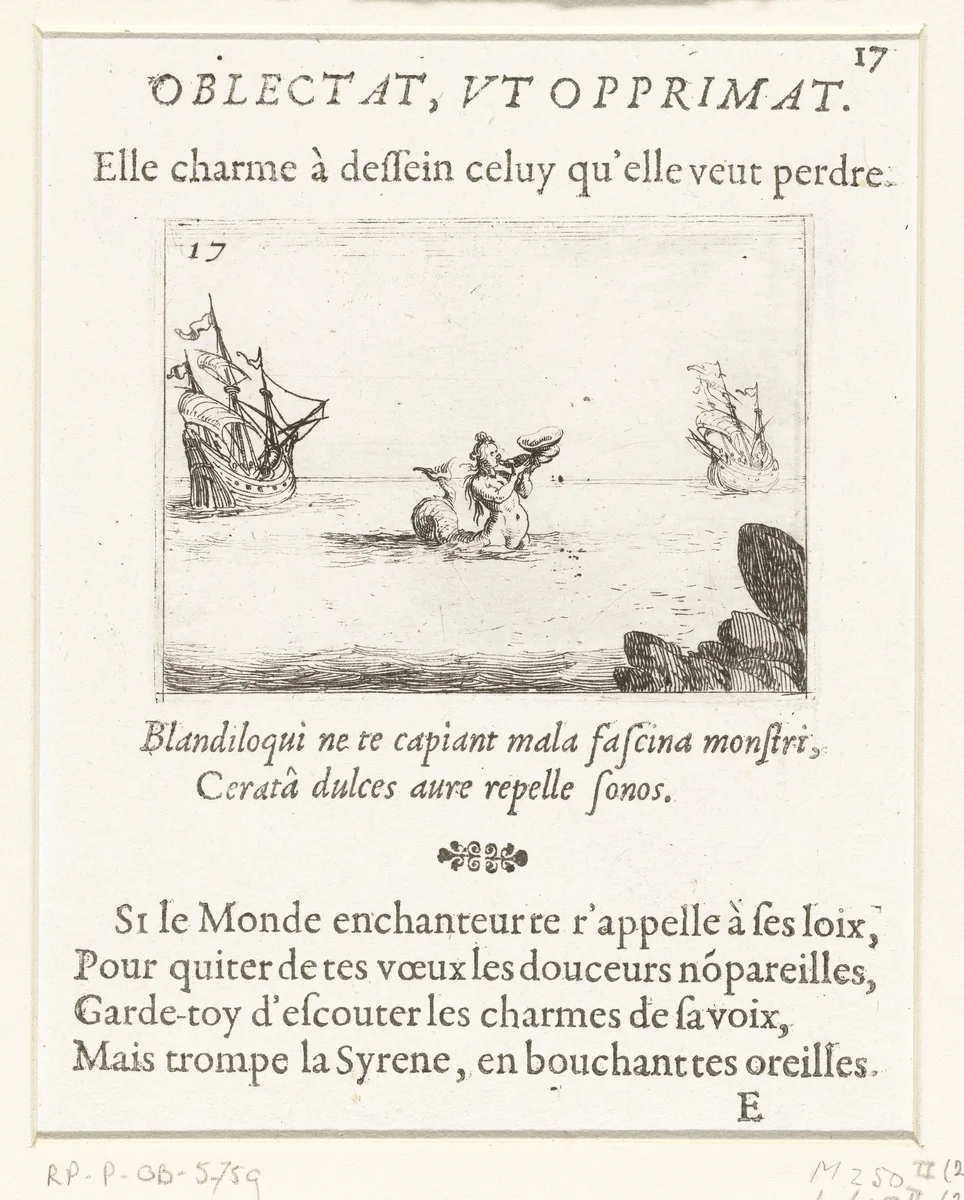 17
OBLECTAT, VT OPPRIMAT.
Elle charme à deſſein celuy qu'elle veut perdre.
17
Blandiloqui ne te capiant mala faſcina monſtri,
Ceratâ dulces aure repelle ſonos.
SI le Monde enchanteur te r'appelle à ſes loix,
Pour quiter de tes vœux les douceurs nópareilles,
Garde-toy d'eſcouter les charmes de ſa voix,
Mais trompe la Syrene, en bouchant tes oreilles.
E
RP-P-OB-5759
M 250 II (2